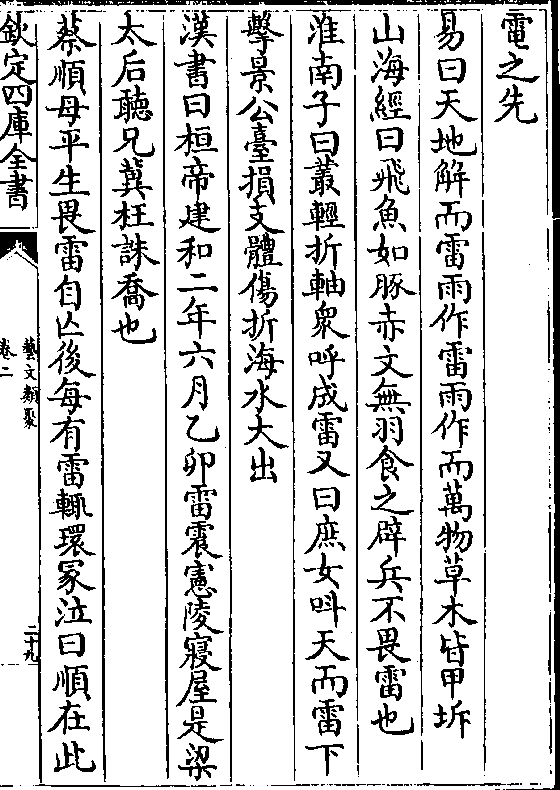 電之先
易曰天地解而雷雨作雷雨作而萬物草木皆甲坼
山海經曰飛魚如豚赤文無羽食之辟兵不畏雷也
淮南子曰叢輕折軸衆呼成雷又曰庶女呌天而雷下
擊景公臺損支體傷折海水大出
漢書曰桓帝建和二年六月乙卯雷震憲陵寢屋是梁
太后聽兄冀枉誅喬也
蔡順母平生畏雷自亡後每有雷輒環冢泣曰順在此
欽定四庫全書
藝文類聚
卷二
二十九